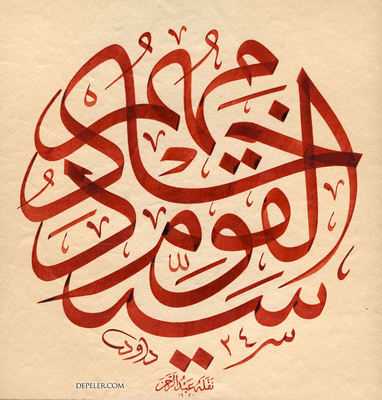 سيد القوم خادمهم
٢٤
داود
نقله عبد الرحمن
DEPELER.COM